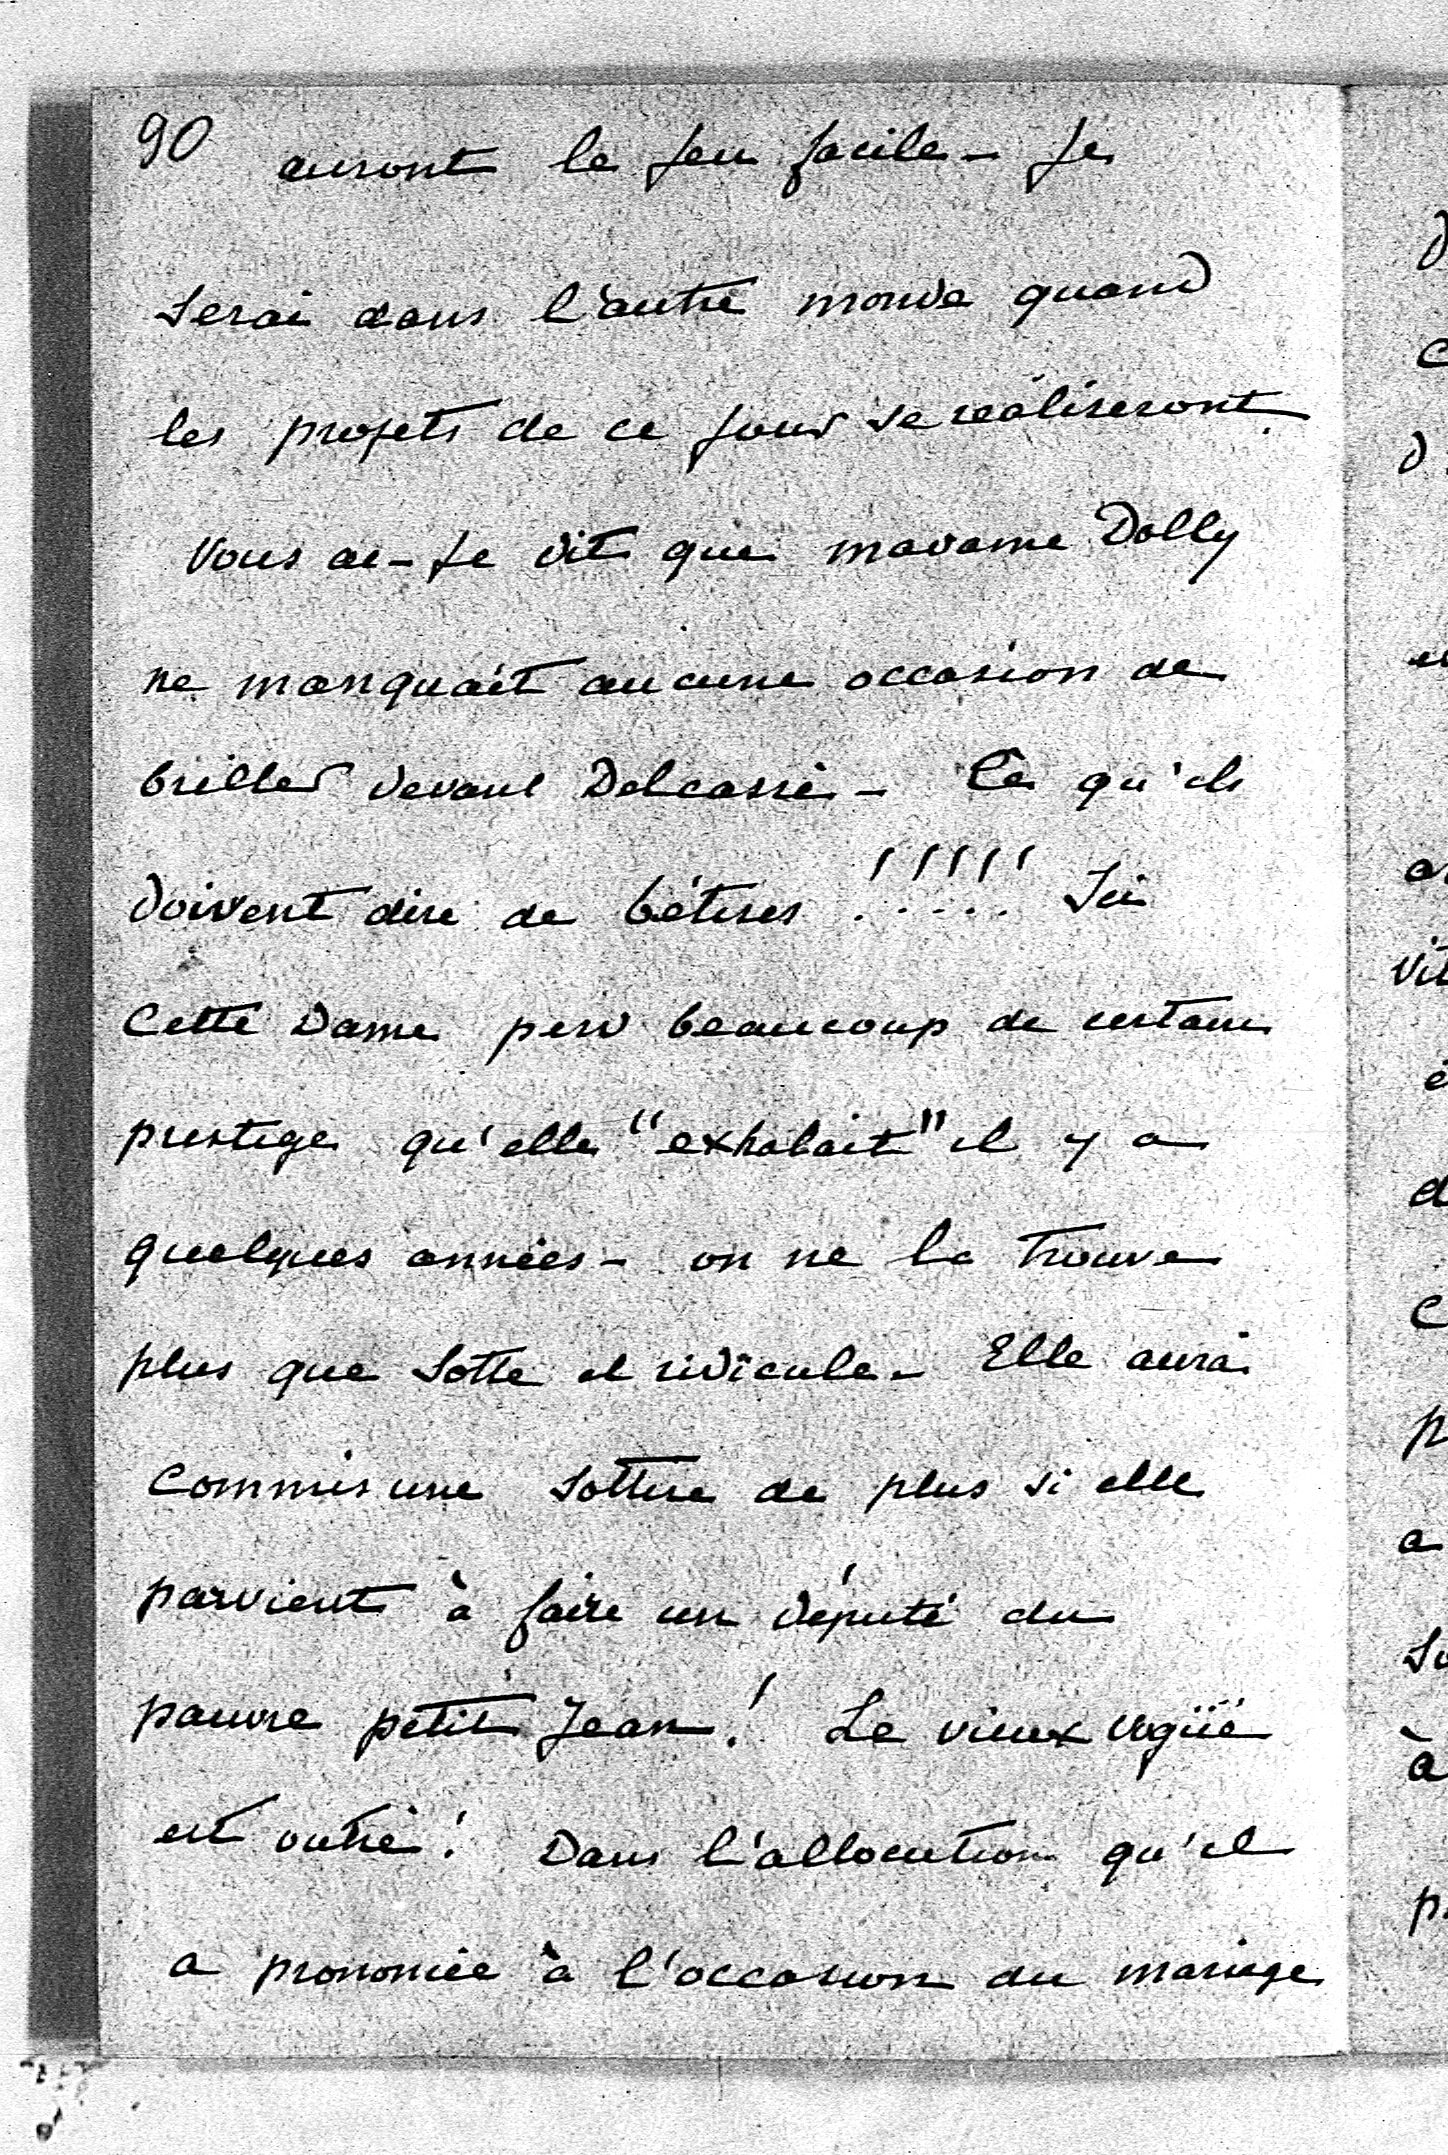 90
auront le jeu facile - Je
serai dans l'autre monde quand
les projets de ce jour se réaliseront.
Vous ai-je dit que madame Dolly
ne manquait aucune occasion de
briller devant Delcassé - Ce qu'ils
doivent dire de bétises !!!!! Ici
Cette Dame perd beaucoup de certain
prestige qu'elle "exhalait" il y a
quelques années - on ne la trouve
plus que sotte et ridicule - Elle aura
commis une sottise de plus si elle
parvient à faire un député du
pauvre petit Jean! Le vieux Vogüé
est outré! Dans l'allocution qu'il
a prononcée à l'occasion du mariage